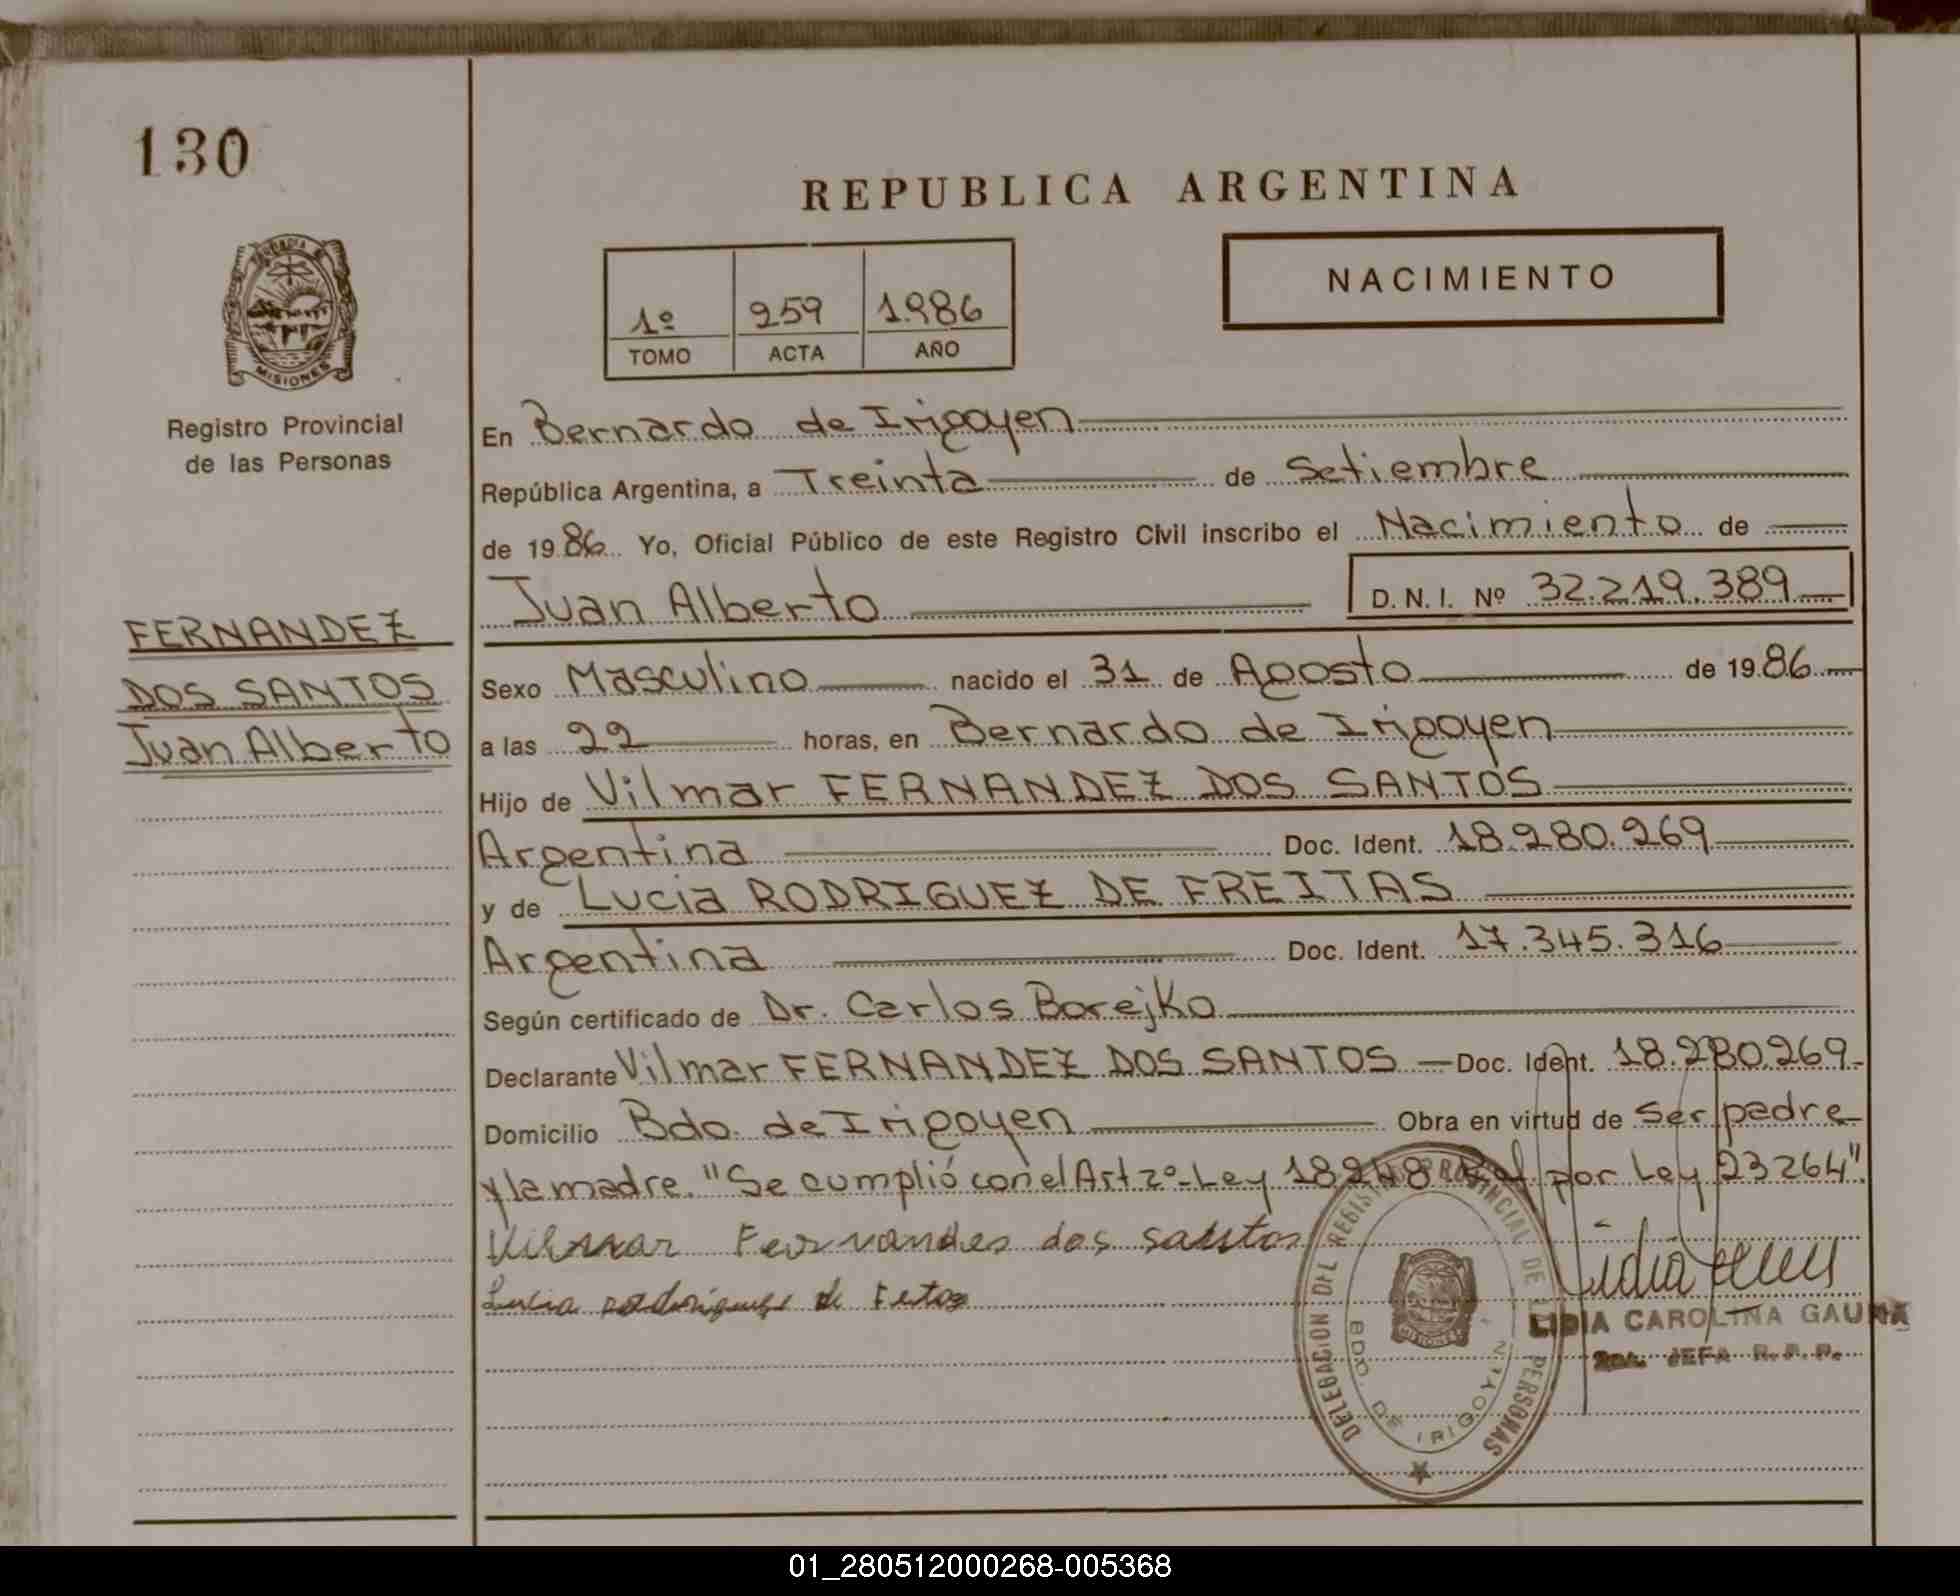 130
REPUBLICA ARGENTINA
NACIMIENTO
1º 259 1986
TOMO ACTA AÑO
MISIONES
Registro Provincial
de las Personas
FERNANDEZ
DOS SANTOS
Juan Alberto
En Bernardo de Irigoyen
República Argentina, a Treinta de Setiembre
de 1986 Yo, Oficial Público de este Registro Civil inscribo el Nacimiento de
Juan Alberto D. N. I. Nº 32.219.389
Sexo Masculino nacido el 31 de Agosto de 1986
a las 22 horas, en Bernardo de Irigoyen
Hijo de Vilmar FERNANDEZ DOS SANTOS
Argentina Doc. Ident. 18.280.269
y de Lucia RODRIGUEZ DE FREITAS
Argentina Doc. Ident. 17.345.316
Según certificado de Dr. Carlos Borejko
Declarante Vilmar FERNANDEZ DOS SANTOS — Doc. Ident. 18.280.269
Domicilio Bdo. de Irigoyen Obra en virtud de ser padre
y la madre. "Se cumplió con el Art 2º-Ley 18248 por Ley 23264".
Vilmar Fernandes dos santos
Lucia de
DELEGACION DEL REGISTRO PROVINCIAL DE LAS PERSONAS
BDO. DE IRIGOYEN
MISIONES
Lidia
LIDIA CAROLINA GAUNA
JEFA R. P. P.
01_280512000268-005368